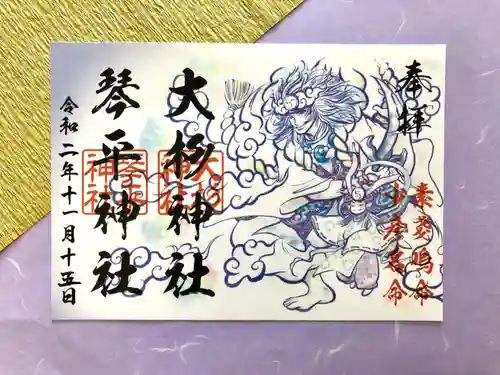 奉拝
素戔嗚命
少彦名命
大杉神社
琴平神社
令和二年十一月十五日
大杉神社
琴平神社